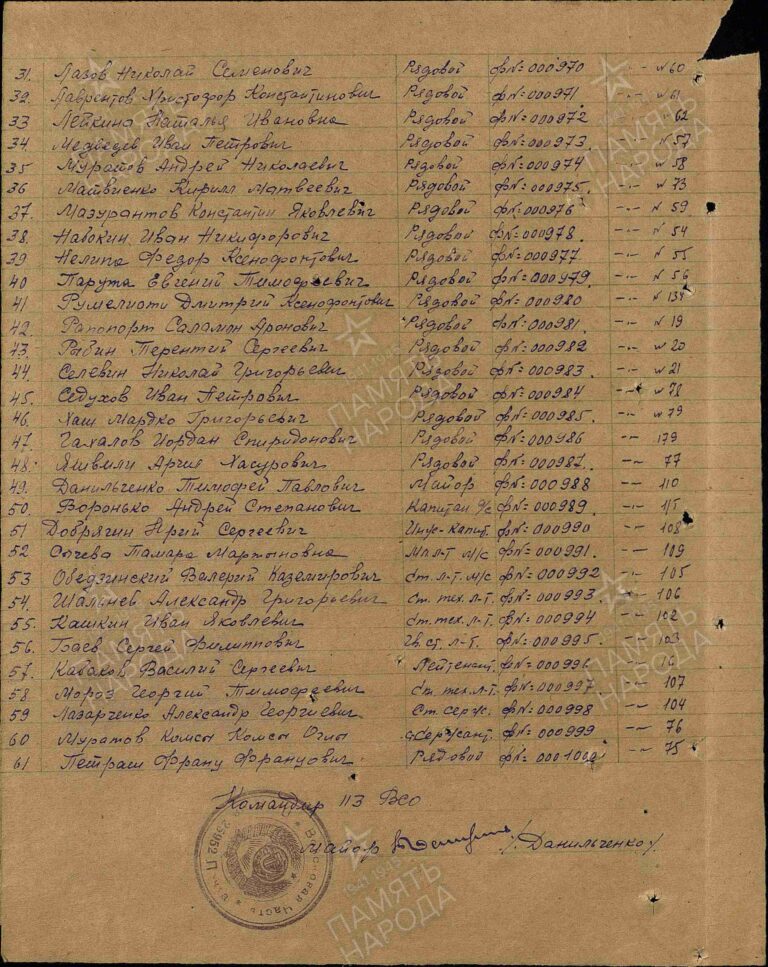 31. Лазов Николай Семенович Рядовой ф№=000970 -"- №60
32. Лаврентов Христофор Константинович Рядовой ф№=000971 -"- №61
33 Лейкина Наталья Ивановна Рядовой ф№=000972 -"- 62
34 Медведев Иван Петрович Рядовой ф№=000973. -"- №57
35 Муратов Андрей Николаевич Рядовой ф№=000974 -"- №58
36 Матвиенко Кирилл Матвеевич Рядовой ф№=000975. -"- №73
37. Мазурантов Константин Яковлевич Рядовой ф№=000976 -"- №59
38. Набокин Иван Никифорович Рядовой ф№=000978. -"- №54
39 Нелипа Федор Ксенофонтович Рядовой ф№=000977. -"- №55
40 Парута Евгений Тимофеевич Рядовой ф№=000979. -"- №56
41 Румелиоти Дмитрий Ксенофонтович Рядовой ф№=000980 -"- №134
42. Рапопорт Саламон Аронович Рядовой ф№=000981. -"- №19
43. Рыбин Терентий Сергеевич Рядовой ф№=000982 -"- №20
44. Селевин Николай Григорьевич Рядовой ф№=000983. -"- №21
45. Седухов Иван Петрович Рядовой ф№=000984 -"- №78
46. Хаш Мардко Григорьевич Рядовой ф№=000985. -"- №79
47. Чахалов Иордан Спиридонович Рядовой ф№=000986 -"- 179
48. Яшвили Арчил Хасурович Рядовой ф№=000987. -"- 77
49. Данильченко Тимофей Павлович Майор ф№=000988 -"- 110
50. Воронько Андрей Степанович Капитан ф№=000989. -"-
51 Добрягин Юрий Сергеевич Инж-капит. ф№=000990 -"- 108
52 Сычева Тамара Мартыновна Мл л-т м/с ф№=000991. -"- 109
53 Обедзинский Валерий Каземирович Ст. л-т. м/с ф№=000992 -"- 105
54. Шальнев Александр Григорьевич Ст. тех. л-т. ф№=000993 -"- 106
55. Кашкин Иван Яковлевич Ст. тех. л-т. ф№=000994 -"- 102
56. Баев Сергей Филиппович Гв. ст. л-т. ф№=000995. -"- 103
57. Кабаков Василий Сергеевич Лейтенант. ф№=000996 -"-
58 Мороз Георгий Тимофеевич Ст. тех. л-т. ф№=000997. -"- 107
59 Назарченко Александр Георгиевич Ст. серж. ф№=000998 -"- 104
60 Муратов Комсы Комсы Оглы Сержант. ф№=000999 -"- 76
61 Петраш Франц Францович. Рядовой ф№=0001000 -"- 75
Командир 113 ВСО
майор /Данильченко/.
Войсковая Часть
ПАМЯТЬ НАРОДА
1941-1945